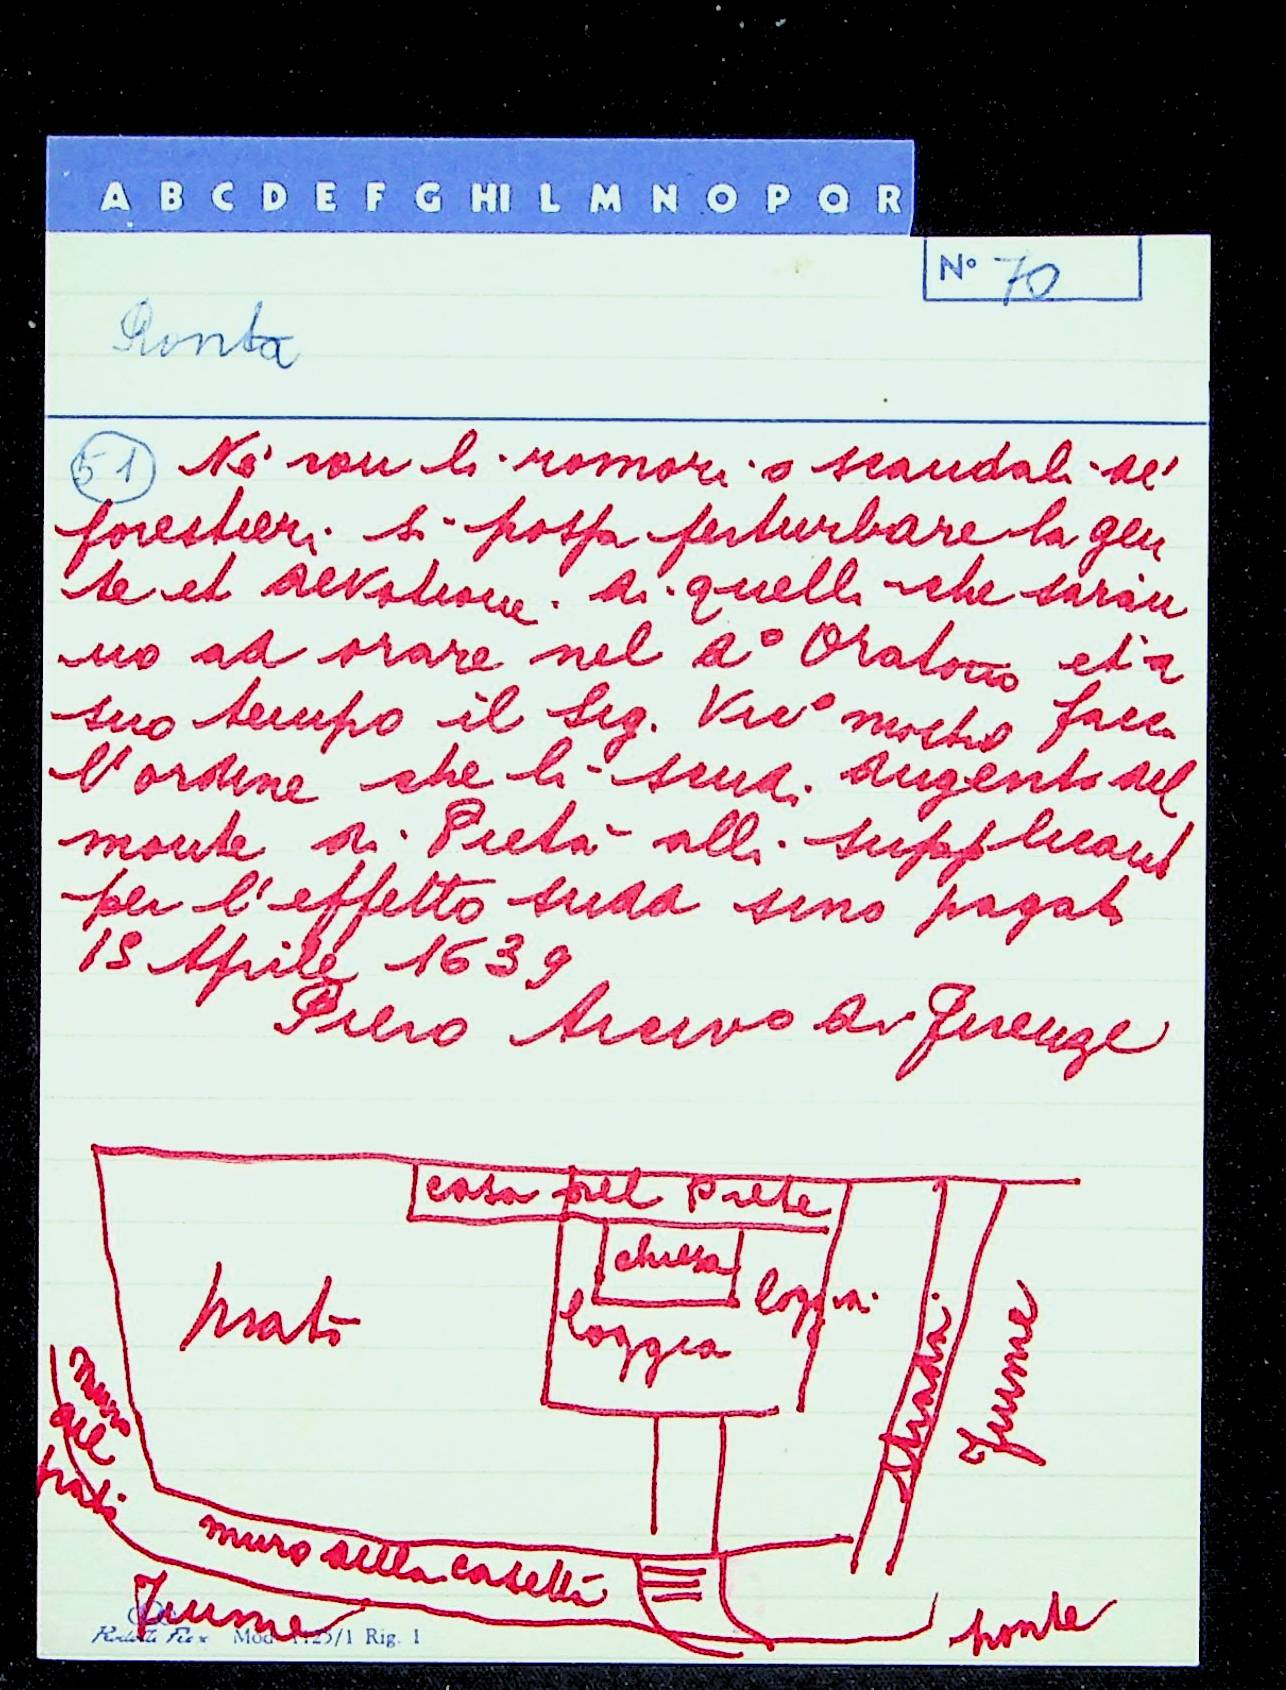 A B C D E F G HI L M N O P Q R
N° 70
Ronta
51 Né con li romori o scandali de'
forestieri si possa perturbare la gen
te et devotione di quelli che saran
no ad orare nel d° Oratorio et a
suo tempo il Sig. Vic° nostro facci
l'ordine che li scudi dugento del
monte di Pietà alli supplicanti
per l'effetto sudd sino pagati
15 Aprile 1639
Piero Arcivo di Firenze
casa del Prete
chiesa
loggia
loggia
prato
strada
fiume
muro
del
prato
muro della casetta
fiume
ponte
Mod. 1125/1 Rig. 1